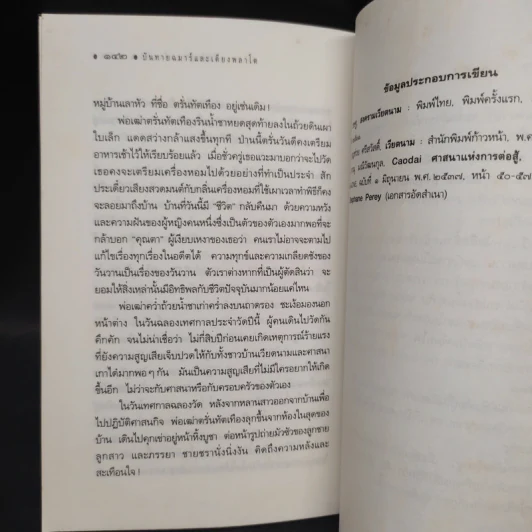 • ๑๔๒ • บันทายฉมาร์และเตียงพลาไต
หมู่บ้านเลาหัว ที่ชื่อ ตรั่นทัตเทือง อยู่เช่นเดิม !
พ่อเฒ่าตรั่นทัตเทืองรินน้ำชาหยดสุดท้ายลงในถ้วยดินเผา
ใบเล็ก แดดสว่างกล้าแสงขึ้นทุกที ป่านนี้ตรั่นวันดีคงเตรียม
อาหารเช้าไว้ให้เรียบร้อยแล้ว เมื่อชั่วครู่เธอแวะมาบอกว่าจะไปวัด
เธอคงจะเตรียมเครื่องหอมไปด้วยอย่างที่ทำเป็นประจำ สัก
ประเดี๋ยวเสียงสวดมนต์กับกลิ่นเครื่องหอมที่ใช้เผาเวลาทำพิธีก็คง
จะลอยมาถึงบ้าน บ้านที่วันนี้มี “ชีวิต” กลับคืนมา ด้วยความหวัง
และความฝันของผู้หญิงคนหนึ่งซึ่งเป็นตัวของตัวเองมากพอที่จะ
กล้าบอก “คุณตา” ผู้เงียบเหงาของเธอว่า คนเราไม่อาจจะตามไป
แก้ไขเรื่องทุกเรื่องในอดีตได้ ความทุกข์และความเกลียดชังของ
วันวานเป็นเรื่องของวันวาน ตัวเราต่างหากที่เป็นผู้ตัดสินว่า จะ
ยอมให้สิ่งเหล่านั้นมีอิทธิพลกับชีวิตปัจจุบันมากน้อยแค่ไหน
พ่อเฒ่าคว่ำถ้วยน้ำชาเก่าคร่ำลงบนถาดรอง ชะเง้อมองนอก
หน้าต่าง ในวันฉลองเทศกาลประจำวัดปีนี้ ผู้คนเดินไปวัดกัน
คึกคัก จนไม่น่าเชื่อว่า ไม่กี่สิบปีก่อนเคยเกิดเหตุการณ์ร้ายแรง
ที่ยังความสูญเสียเจ็บปวดให้กับทั้งชาวบ้านเวียดนามและศาสนา
เกาได๋มากพอๆ กัน มันเป็นความสูญเสียที่ไม่มีใครอยากให้เกิด
ขึ้นอีก ไม่ว่าจะกับศาสนาหรือกับครอบครัวของตัวเอง
ในวันเทศกาลฉลองวัด หลังจากหลานสาวออกจากบ้านเพื่อ
ไปปฏิบัติศาสนกิจ พ่อเฒ่าตรั่นทัตเทืองลุกขึ้นจากห้องในสุดของ
บ้าน เดินไปคุกเข่าอยู่หน้าหิ้งบูชา ต่อหน้ารูปถ่ายมัวซัวของลูกชาย
ลูกสาว และภรรยา ชายชรานั่งนิ่งงัน คิดถึงความหลังและ
สะเทือนใจ !
ข้อมูลประกอบการเขียน
สงครามเวียดนาม : พิมพ์ไทย, พิมพ์ครั้งแรก,
ศรีสวัสดิ์, เวียดนาม : สำนักพิมพ์ก้าวหน้า, พ.ศ.
Caodai ศาสนาแห่งการต่อสู้,
ฉบับที่ ๑ มิถุนายน พ.ศ. ๒๕๓๗, หน้า ๕๐-๕๗
Perey (เอกสารอัดสำเนา)